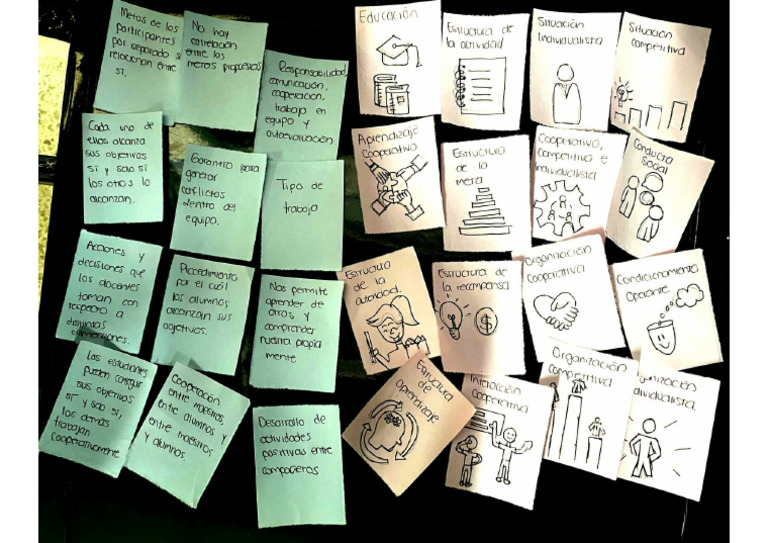 Metas de los
participantes
por separado se
relacionan entre
sí.
No hay
correlación
entre las
metas propuestas
Responsabilidad,
comunicación,
cooperación,
trabajo en
equipo y
autoevaluación
Educación
Estructura de
la actividad
Situación
Individualista
Situación
competitiva
Cada uno de
ellos alcanza
sus objetivos
sí y solo sí
los otros lo
alcanzan.
Garantiza para
generar
conflictos
dentro del
equipo.
Tipo de
trabajo
Aprendizaje
cooperativo
Estructura
de la
meta
Cooperativo,
competitivo e
individualista
Conducta
Social
Acciones y
decisiones que
los docentes
toman con
respecto a
distintas
dimensiones.
Procedimiento
por el cuál
los alumnos
alcanzan sus
objetivos.
Nos permite
aprender de
otros y
comprender
nuestra propia
mente
Estructura
de la
autoridad.
Estructura de
la recompensa
Organización
cooperativa
Condicionamiento
Operante
Los estudiantes
pueden conseguir
sus objetivos
sí y solo sí,
los demás
trabajan
cooperativamente.
Cooperación
entre maestros,
entre alumnos y
entre maestros
y alumnos.
Desarrollo de
actividades
positivas entre
compañeros
Estructura
de
aprendizaje
Interacción
cooperativa
Organización
competitiva